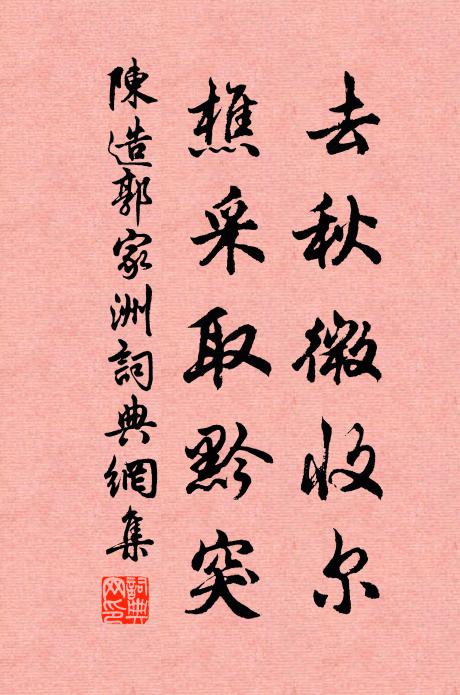 去秋微收尔
樵采取黔突
陳造郭家洲詞典網集
詞典網印